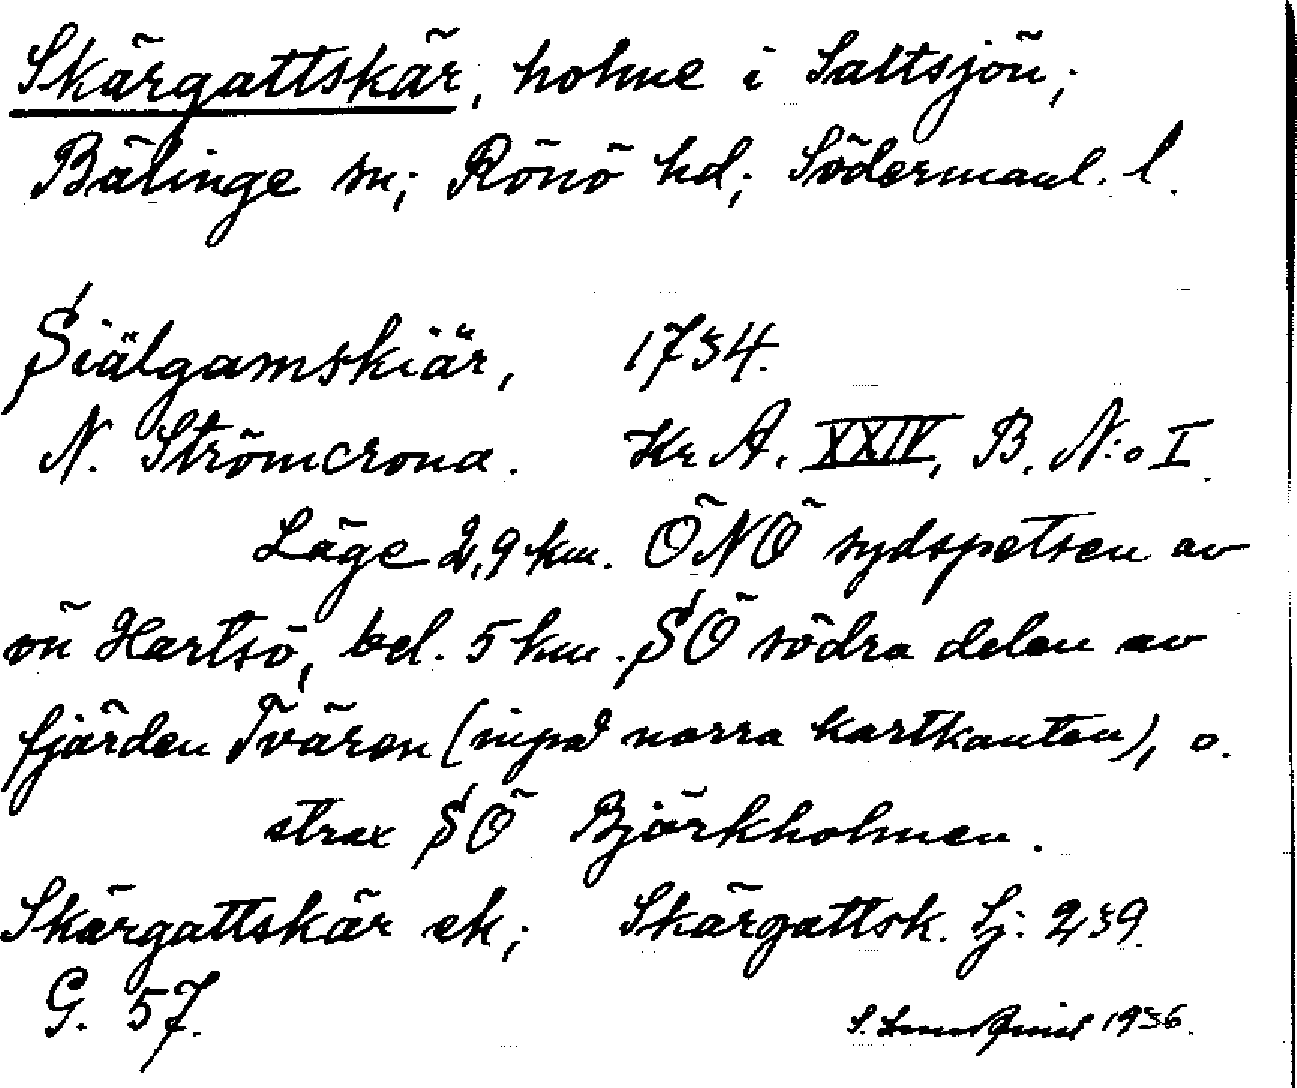 Skärgattskär, holme i Saltsjön;
Bälinge sn; Rönö hd; Södermanl. l.
Siälgamskiär, 1734.
N. Strömcrona. Kr A. XXIV, B. N:o I.
Läge 2,9 km. ÖNÖ sydspetsen av
ön Hartsö, bel. 5 km. SÖ södra delen av
fjärden Tvären (inpå norra kartkanten), o.
strax SÖ Björkholmen.
Skärgattskär ek; Skärgattsk. Sj: 239.
G. 57.
S. 1936.